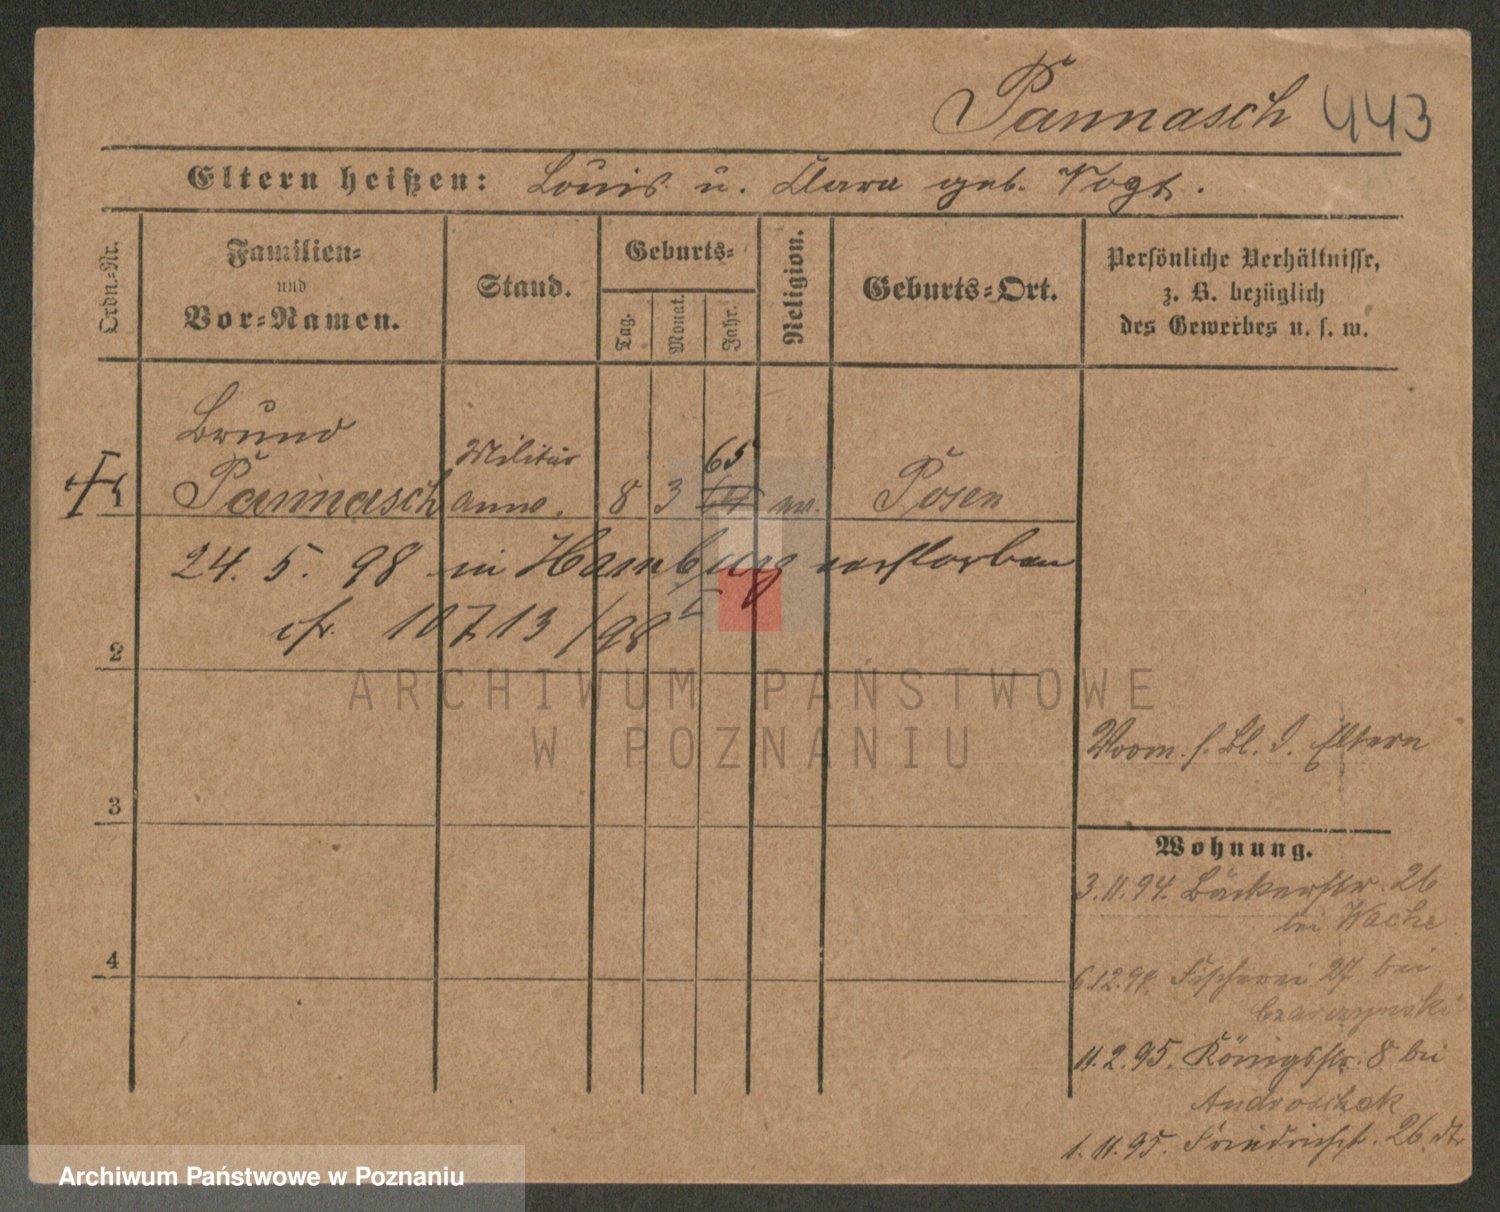 Pannasch 443
Eltern heißen: Louis u. Clara geb. Vogt.
Ordn.-Nr.
Familien-
und
Vor-Namen.
Stand.
Geburts-
Tag.
Monat.
Jahr.
Religion.
Geburts-Ort.
Persönliche Verhältnisse,
z. B. bezüglich
des Gewerbes u. s. w.
Bruno
Militär
65
1 Pannasch anw. 8 3 64 ev. Posen
24. 5. 98 in Hamburg verstorben
cfr. 10713/98
2
ARCHIWUM PAŃSTWOWE
W POZNANIU
Vorm. s. Bl. d. Eltern
3
Wohnung.
3.11.94. Bäckerstr. 26
bei Wache
4
6.12.94. Fischerei 27 bei
11.2.95. Königsstr. 8 bei
Androschek
1.11.95. Friedrichst. 26
Archiwum Państwowe w Poznaniu